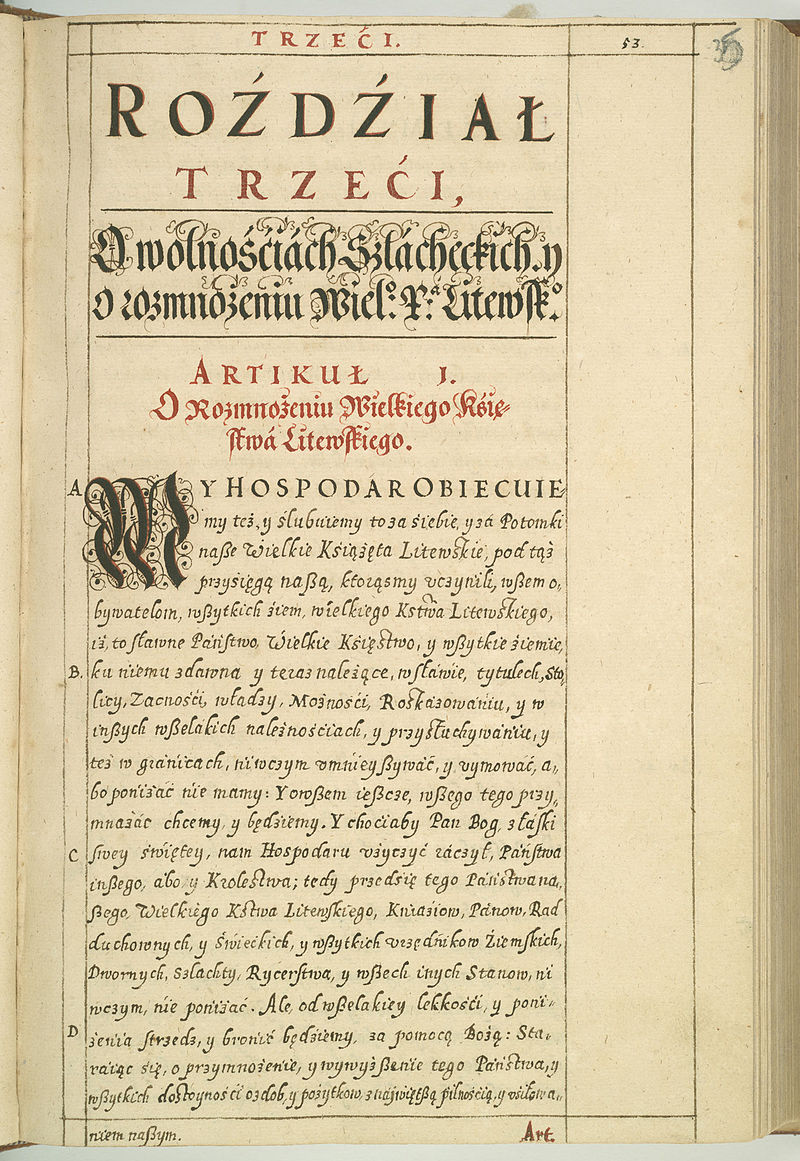 TRZEĆI.
53.
35
ROŹDŹIAŁ
TRZEĆI,
O wolnośćiách Szlácheckich. y
o rozmnożeniu Wiel.º X.ª Litewsk.º
ARTIKUŁ I.
O Rozmnożeniu Wielkiego Xśię-
stwá Litewskiego.
A. MY HOSPODAR OBIECUIE
my też, y ślubuiemy to za śiebie, y zá Potomki
naße Wielkie Xiążęta Litewskie, pod tąż
przyśięgą naßą, ktorąsmy vczynili, wßem o,
bywatelom, wßytkich źiem, wielkiego Xstwa Litewskiego,
iż, to sławne Páństwo, Wielkie Xięstwo, y wßytkie źiemie,
B. ku niemu zdawna y teraz należące, w sławie, tytulech, Sto,
licy, Zacnośći, władzy, Możnośći, Roskazowániu, y w
inßych wßelakich należnośćiach, y przysłuchywániu, y
też w gránicach, ni wczym vmnieyßywáć, y vymowáć, a,
bo poniżáć nie mamy: Y owßem ießcze, wßego tego przy,,
mnażáć chcemy, y będźiemy. Y choćiaby Pan Bog, z łáski
C swey świętey, nam Hospodaru vżyczyć ráczył, Páństwa
inßego, abo y Krolestwa; tedy przedśię tego Páństwa na,,
ßego, Wielkiego Xstwa Litewskiego, Kniaźiow, Pánow, Rad
duchownych, y Świeckich, y wßytkich vrzędnikow Źiemskich,
Dwornych, Szlachty, Rycerstwa, y wßech inych Stanow, ni
wczym, nie poniżáć. Ale, od wßelakiey lekkośći, y poni-
D żenia strzedz, y bronić będźiemy, za pomocą Bożą: Sta,,
raiąc śię, o przymnożenie, y wywyżßenie tego Páństwa, y
wßytkich dostoynośći ozdob, y pożytkow, z náywiętßą pilnośćią, y vśiłowa,,
niem naßym.
Art.